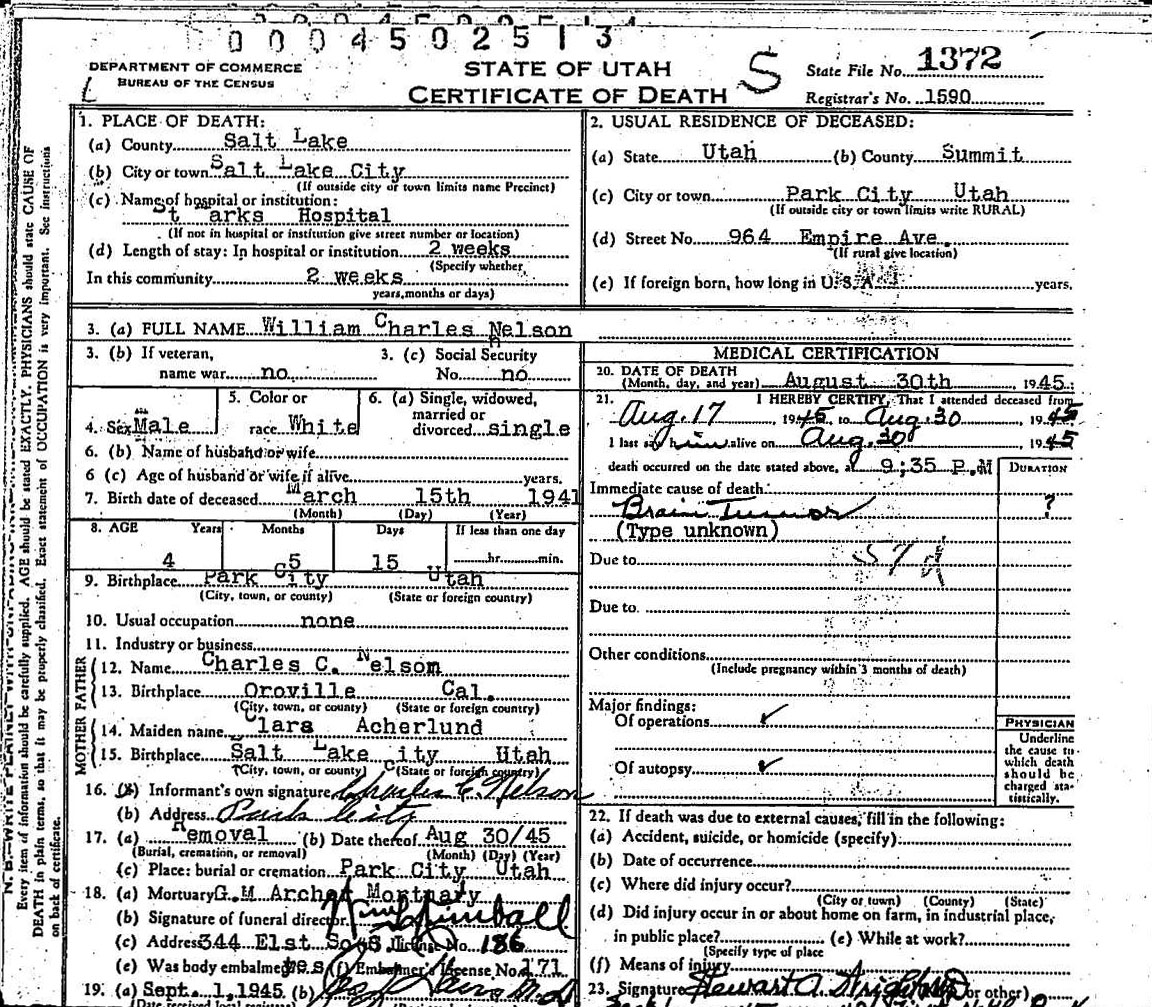 0 0 0 4 5 0 2 5 1 3
DEPARTMENT OF COMMERCE
BUREAU OF THE CENSUS
STATE OF UTAH
CERTIFICATE OF DEATH
S
State File No. 1372
Registrar's No. 1590
N. B.—WRITE PLAINLY WITH UNFADING
Every item of information should be carefully supplied. AGE should be stated EXACTLY. PHYSICIANS should state CAUSE OF
DEATH in plain terms, so that it may be properly classified. Exact statement of OCCUPATION is very important. See instructions
on back of certificate.
1. PLACE OF DEATH:
(a) County Salt Lake
(b) City or town Salt Lake City
(If outside city or town limits name Precinct)
(c) Name of hospital or institution:
St arks Hospital
(If not in hospital or institution give street number or location)
(d) Length of stay: In hospital or institution 2 weeks
(Specify whether
In this community 2 weeks
years, months or days)
2. USUAL RESIDENCE OF DECEASED:
(a) State Utah (b) County Summit
(c) City or town Park City Utah
(If outside city or town limits write RURAL)
(d) Street No. 964 Empire Ave.
(If rural give location)
(e) If foreign born, how long in U. S. A. years.
3. (a) FULL NAME William Charles Nelson
3. (b) If veteran, name war no
3. (c) Social Security No. no
4. Sex Male
5. Color or race White
6. (a) Single, widowed, married or divorced single
6. (b) Name of husband or wife
6 (c) Age of husband or wife if alive years.
7. Birth date of deceased March 15th 1941
(Month) (Day) (Year)
8. AGE Years Months Days If less than one day
4 5 15 hr. min.
9. Birthplace Park City Utah
(City, town, or county) (State or foreign country)
10. Usual occupation none
11. Industry or business
FATHER
12. Name Charles C. Nelson
13. Birthplace Oroville Cal.
(City, town, or county) (State or foreign country)
MOTHER
14. Maiden name Clara Acherlund
15. Birthplace Salt Lake City Utah
(City, town, or county) (State or foreign country)
16. (a) Informant's own signature Charles C. Nelson
(b) Address Park City
17. (a) Removal (b) Date thereof Aug 30/45
(Burial, cremation, or removal) (Month) (Day) (Year)
(c) Place: burial or cremation Park City Utah
18. (a) Mortuary G.M Archer Mortnary
(b) Signature of funeral director Kimball
(c) Address 344 E1st So S. L License No. 186
(e) Was body embalmed yes (f) Embalmer's License No. 171
19. (a) Sept. 1, 1945 (b)
(Date received local registrar)
MEDICAL CERTIFICATION
20. DATE OF DEATH
(Month, day, and year) August 30th, 1945
21. I HEREBY CERTIFY, That I attended deceased from
Aug. 17 1945 to Aug. 30, 1945
I last saw him alive on Aug. 30 1945
death occurred on the date stated above, at 9;35 P.M
DURATION
Immediate cause of death
Brain Tumor ?
(Type unknown)
Due to 57d
Due to
Other conditions
(Include pregnancy within 3 months of death)
Major findings:
Of operations ✓
Of autopsy ✓
PHYSICIAN
Underline
the cause to
which death
should be
charged sta-
tistically.
22. If death was due to external causes, fill in the following:
(a) Accident, suicide, or homicide (specify)
(b) Date of occurrence
(c) Where did injury occur?
(City or town) (County) (State)
(d) Did injury occur in or about home on farm, in industrial place,
in public place? (e) While at work?
(Specify type of place
(f) Means of injury
23. Signature Stewart A. or other)